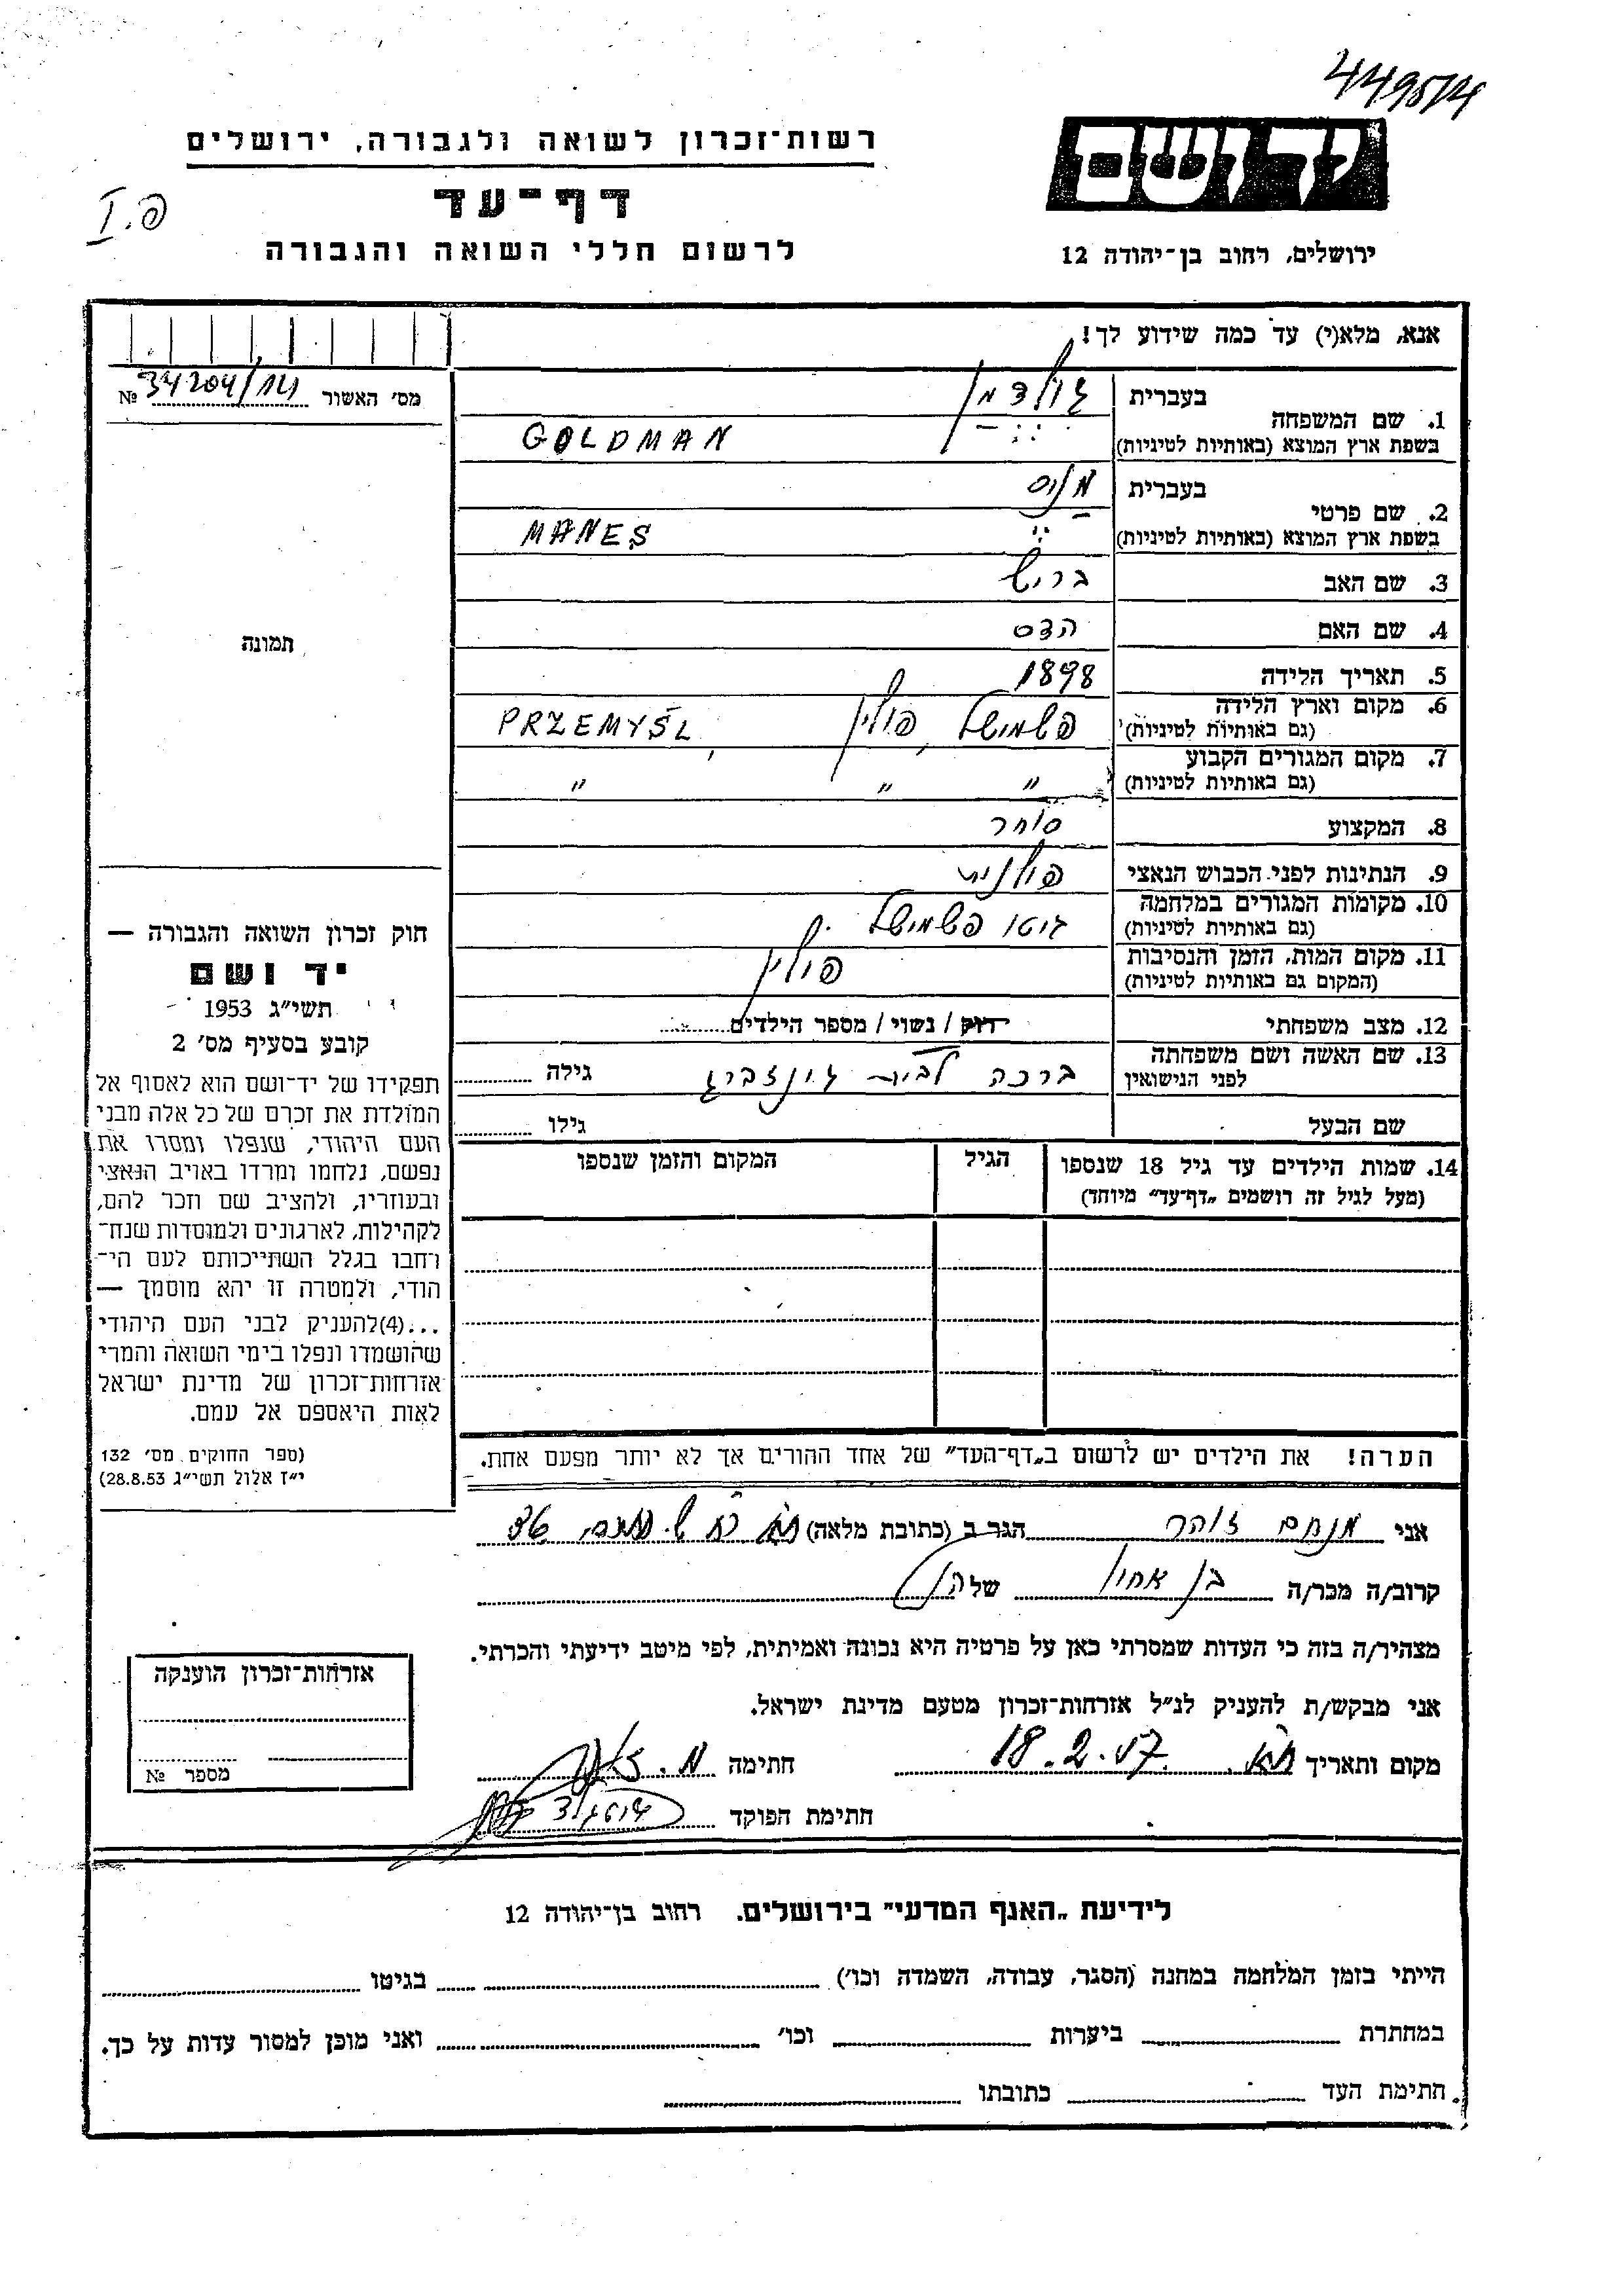 רשות־זכרון לשואה ולגבורה, ירושלים
דף־עד
לרשום חללי השואה והגבורה
ירושלים, רחוב בן־יהודה 12
אנא, מלא(י) עד כמה שידוע לך!
מס' האשור 34204/ №
1. שם המשפחה
בעברית גולדמן
בשפת ארץ המוצא (באותיות לטיניות) GOLDMAN
2. שם פרטי
בעברית מנס
בשפת ארץ המוצא (באותיות לטיניות) MANES
3. שם האב בריש
4. שם האם הדס
5. תאריך הלידה 1898
6. מקום וארץ הלידה
(גם באותיות לטיניות) פשמישל, פולין, PRZEMYŚL
7. מקום המגורים הקבוע
(גם באותיות לטיניות) " " "
8. המקצוע סוחר
9. הנתינות לפני הכבוש הנאצי פולנית
10. מקומות המגורים במלחמה
(גם באותיות לטיניות) גיטו פשמישל
11. מקום המות, הזמן והנסיבות
(המקום גם באותיות לטיניות) פולין
12. מצב משפחתי רווק / נשוי / מספר הילדים
13. שם האשה ושם משפחתה
לפני הנישואין ברכה לבית גינזברג גילה
שם הבעל גילו
14. שמות הילדים עד גיל 18 שנספו
(מעל לגיל זה רושמים „דף־עד" מיוחד)
הגיל
המקום והזמן שנספו
הערה! את הילדים יש לרשום ב„דף־העד" של אחד ההורים אך לא יותר מפעם אחת.
תמונה
חוק זכרון השואה והגבורה —
יד ושם
תשי"ג 1953
קובע בסעיף מס' 2
תפקידו של יד־ושם הוא לאסוף אל
המולדת את זכרם של כל אלה מבני
העם היהודי, שנפלו ומסרו את
נפשם, נלחמו ומרדו באויב הנאצי
ובעוזריו, ולהציב שם וזכר להם,
לקהילות, לארגונים ולמוסדות שנח־
רחבו בגלל השתייכותם לעם הי־
הודי, ולמטרה זו יהא מוסמך —
...(4)להעניק לבני העם היהודי
שהושמדו ונפלו בימי השואה והמרי
אזרחות־זכרון של מדינת ישראל
לאות היאספם אל עמם.
(ספר החוקים מס' 132
י"ז אלול תשי"ג 28.8.53)
אני מנחם זוהר הגר ב (כתובת מלאה)
קרוב/ה מכר/ה בן אחון של ה
מצהיר/ה בזה כי העדות שמסרתי כאן על פרטיה היא נכונה ואמיתית, לפי מיטב ידיעתי והכרתי.
אני מבקש/ת להעניק לנ"ל אזרחות־זכרון מטעם מדינת ישראל.
מקום ותאריך 18.2.57 חתימה
חתימת הפוקד
אזרחות־זכרון הוענקה
מספר №
לידיעת „האנף המדעי" בירושלים. רחוב בן־יהודה 12
הייתי בזמן המלחמה במחנה (הסגר, עבודה, השמדה וכו') בגיטו
במחתרת ביערות וכו' ואני מוכן למסור עדות על כך.
חתימת העד כתובתו